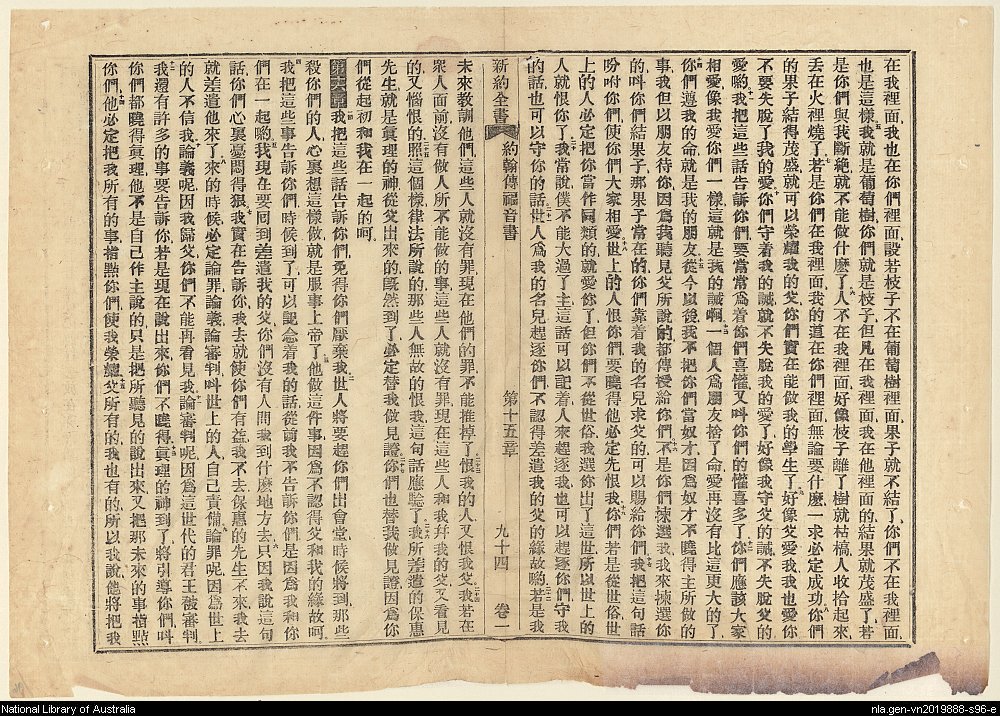 在我裡面我也在你們裡面設若枝子不在葡萄樹裡面果子就不結了你們不在我裡面
也是這樣我就是葡萄樹你們就是枝子但凡在我裡面我在他裡面的結果就茂盛了若
是你們與我斷絕就不能做什麼了人不在我裡面好像枝子離了樹就枯槁人收拾起來
丟在火裡燒了若是你們在我裡面我的道在你們裡面無論要什麼一求必定成功你們
的果子結得茂盛就可以榮耀我的父你們實在能做我的學生了好像父愛我我也愛你
不要失脫了我的愛你們守着我的誡就不失脫我的愛了好像我守父的誡不失脫父的
愛喲我把這些話告訴你們要常常爲着你們喜懽又叫你們的懽喜多了你們應該大家
相愛像我愛你們一樣這就是我的誡啊一個人爲朋友捨了命愛再沒有比這更大的了
你們遵我的命就是我的朋友從今以後我不把你們當奴才因爲奴才不曉得主所做的
事我但以朋友待你因爲我聽見父所說的都傳授給你們不是你們揀選我我來揀選你
的叫你們結果子那果子常在的你們靠着我的名兒求父的可以賜給你們我把這句話
吩咐你們使你們大家相愛世上的人恨你們要曉得他必定先恨我你們若是從世俗世
上的人必定把你當作同類的就愛你了但你們不從世俗我選你出了這世所以世上的
人就恨你了我常說僕不能大過了主這話可以記着人來起逐我也可以起逐你們守我
的話也可以守你的話世人爲我的名兒起逐你們不認得差遣我的父的緣故喲若是我
新約全書 約翰傳福音書 第十五章 九十四 卷一
未來教訓他們這些人就沒有罪現在他們的罪不能推掉了恨我的人又恨我父我若在
衆人面前沒有做人所不能做的事這些人就沒有罪現在這些人和我幷我的父又看見
的又惱恨的照這個樣律法所說的那些人無故的恨我這句話應驗了我所差遣的保惠
先生就是眞理的神從父出來的旣然到了必定替我做見證你們也替我做見證因爲你
們從起初和我在一起的呵
第十六章我把這些話告訴你們免得你們厭棄我世人將要起你們出會堂時候將到那些
殺你們的人心裏想這樣做就是服事上帝了他做這件事因爲不認得父和我的緣故呵
我把這些事告訴你們時候到了可以記念着我的話從前我不告訴你們是因爲我和你
們在一起喲我現在要囘到差遣我的父你們沒有人問我到什麼地方去只因我說這句
話你們心裏憂悶得狠我實在告訴你我去就使你們有益我不去保惠的先生不來我去
就差遣他來了來的時候必定論罪論義論審判叫世上的人自己責備論罪呢因爲世上
的人不信我論義呢因我歸父你們不能再看見我論審判呢因爲這世代的君王被審判
我還有許多的事要告訴你若是現在說出來你們不曉得眞理的神到了將引導你們叫
你們都曉得眞理他不是自己作主說的只是把所聽見的說出來又把那未來的事指點
你們他必定把我所有的事指點你們使我榮耀父所有的我也有的所以我說他將把我
National Library of Australia
nla.gen-vn2019888-s96-e